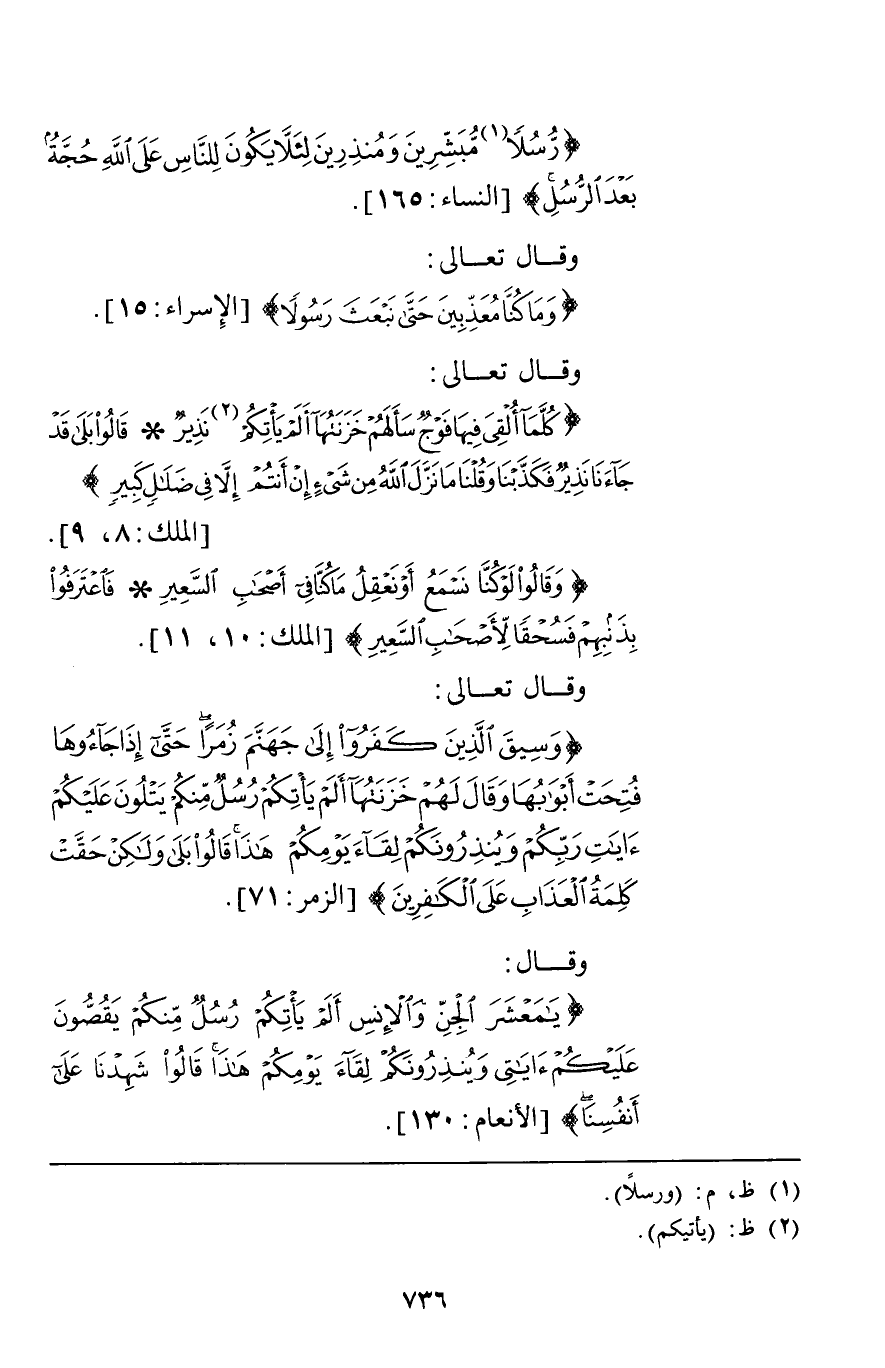 ﴿رُّسُلًا(١) مُّبَشِّرِينَ وَمُنذِرِينَ لِئَلَّا يَكُونَ لِلنَّاسِ عَلَى ٱللَّهِ حُجَّةٌۢ
بَعْدَ ٱلرُّسُلِۚ﴾ [النساء: ١٦٥].
وقـــال تعـــالى:
﴿وَمَا كُنَّا مُعَذِّبِينَ حَتَّىٰ نَبْعَثَ رَسُولًا﴾ [الإسراء: ١٥].
وقـــال تعـــالى:
﴿كُلَّمَآ أُلْقِىَ فِيهَا فَوْجٌ سَأَلَهُمْ خَزَنَتُهَآ أَلَمْ يَأْتِكُمْ(٢) نَذِيرٌ * قَالُوا۟ بَلَىٰ قَدْ
جَآءَنَا نَذِيرٌ فَكَذَّبْنَا وَقُلْنَا مَا نَزَّلَ ٱللَّهُ مِن شَىْءٍ إِنْ أَنتُمْ إِلَّا فِى ضَلَٰلٍ كَبِيرٍ﴾
[الملك: ٨، ٩].
﴿وَقَالُوا۟ لَوْ كُنَّا نَسْمَعُ أَوْ نَعْقِلُ مَا كُنَّا فِىٓ أَصْحَٰبِ ٱلسَّعِيرِ * فَٱعْتَرَفُوا۟
بِذَنۢبِهِمْ فَسُحْقًا لِّأَصْحَٰبِ ٱلسَّعِيرِ﴾ [الملك: ١٠، ١١].
وقـــال تعـــالى:
﴿وَسِيقَ ٱلَّذِينَ كَفَرُوٓا۟ إِلَىٰ جَهَنَّمَ زُمَرًاۖ حَتَّىٰٓ إِذَا جَآءُوهَا
فُتِحَتْ أَبْوَٰبُهَا وَقَالَ لَهُمْ خَزَنَتُهَآ أَلَمْ يَأْتِكُمْ رُسُلٌ مِّنكُمْ يَتْلُونَ عَلَيْكُمْ
ءَايَٰتِ رَبِّكُمْ وَيُنذِرُونَكُمْ لِقَآءَ يَوْمِكُمْ هَٰذَاۚ قَالُوا۟ بَلَىٰ وَلَٰكِنْ حَقَّتْ
كَلِمَةُ ٱلْعَذَابِ عَلَى ٱلْكَٰفِرِينَ﴾ [الزمر: ٧١].
وقـــال:
﴿يَٰمَعْشَرَ ٱلْجِنِّ وَٱلْإِنسِ أَلَمْ يَأْتِكُمْ رُسُلٌ مِّنكُمْ يَقُصُّونَ
عَلَيْكُمْ ءَايَٰتِى وَيُنذِرُونَكُمْ لِقَآءَ يَوْمِكُمْ هَٰذَاۚ قَالُوا۟ شَهِدْنَا عَلَىٰٓ
أَنفُسِنَاۖ﴾ [الأنعام: ١٣٠].
(١) ظ، م: (ورسلًا).
(٢) ظ: (يأتيكم).
٧٣٦